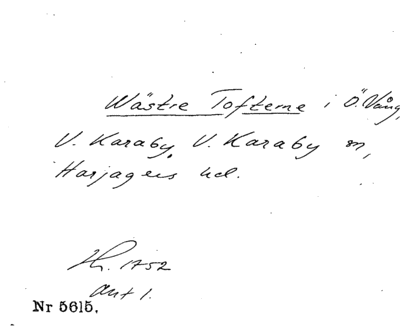 Wästre Tofterne i Ö. Vång,
V. Karaby, V. Karaby sn,
Harjagers hd.
1752
akt 1.
Nr 5615.